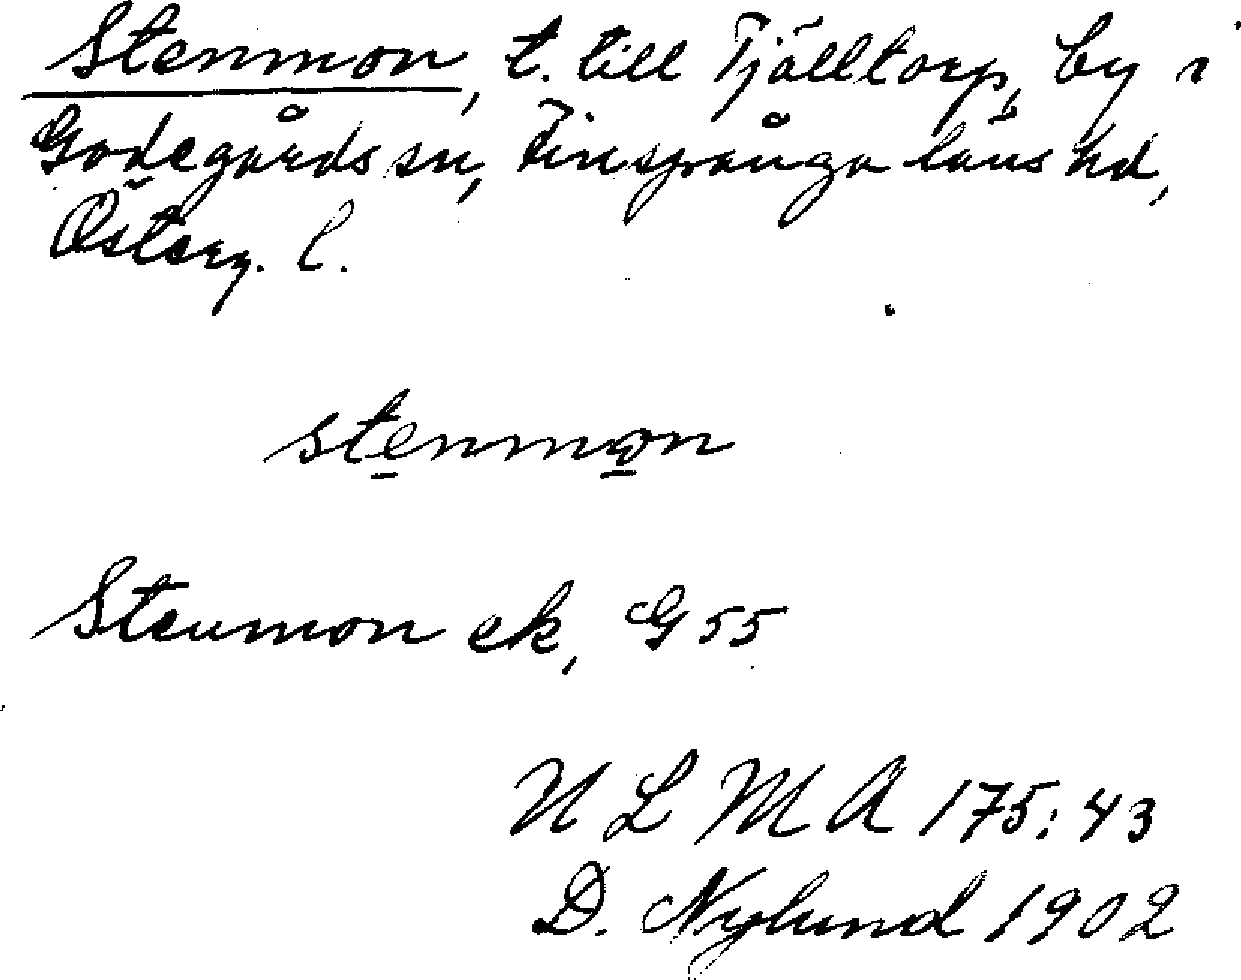 Stenmon, t. till Tjälltorp, by i
Godegårds sn, Finspånga läns hd,
Österg. l.
stenmon
Stenmon ek, G 55
ULMA 175:43
D. Nylund 1902